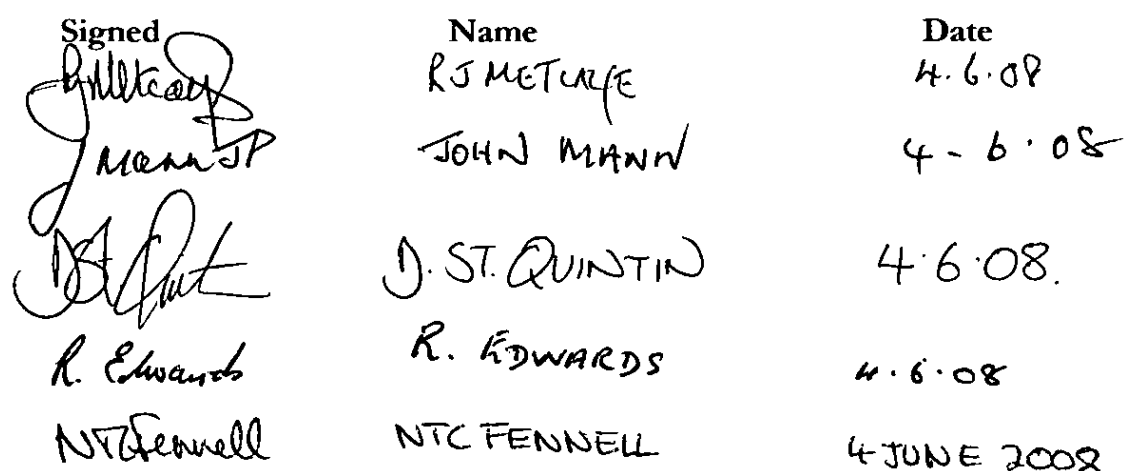 Signed Name Date
RJMetcalfe RJ METCALFE 4.6.08
J Mann JP JOHN MANN 4-6.08
DSt Quintin D. ST. QUINTIN 4.6.08.
R. Edwards R. EDWARDS 4.6.08
NTCFennell NTC FENNELL 4 JUNE 2008